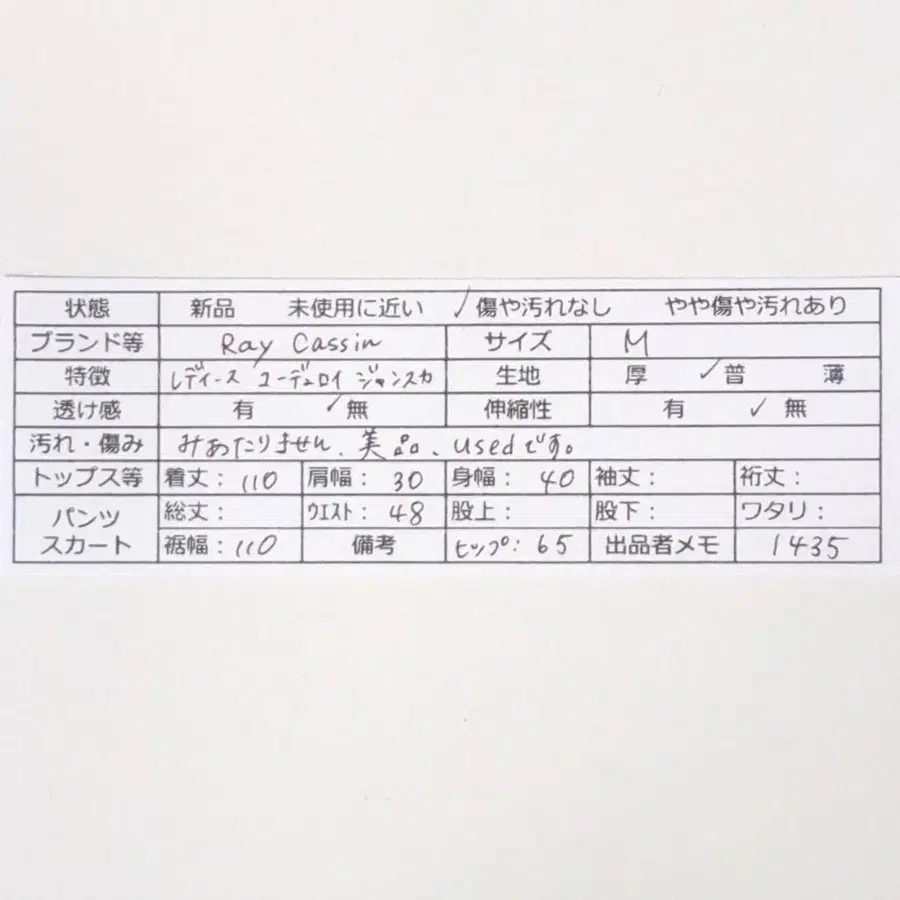 状態 新品 未使用に近い ✓傷や汚れなし やや傷や汚れあり
ブランド等 Ray Cassin サイズ M
特徴 レディース コーデュロイ ジャンスカ 生地 厚 ✓普 薄
透け感 有 ✓無 伸縮性 有 ✓無
汚れ・傷み みあたりません、美品、usedです。
トップス等 着丈：110 肩幅：30 身幅：40 袖丈： 裄丈：
パンツ スカート 総丈： ウエスト：48 股上： 股下： ワタリ：
裾幅：110 備考 ヒップ：65 出品者メモ 1435